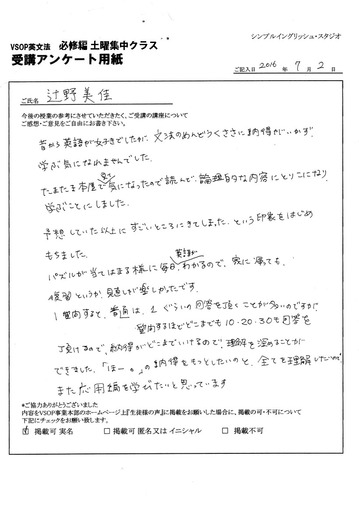 シンプルイングリッシュ・スタジオ
VSOP英文法 必修編 土曜集中クラス
受講アンケート用紙
ご記入日 2016 年 7 月 2 日
ご氏名 辻野美佳
今後の授業の参考にさせていただきたく、ご受講の講座について
ご感想・ご意見をご自由にお書き下さい。
昔から英語が好きでしたが、文法のめんどうくささに納得がいかず
学ぶ気になれませんでした。
たまたま本屋で気になったので読んで、論理的な内容にとりこになり
学ぶことにしました。
予想していた以上にすごいところにきてしまった、という印象をはじめ
もちました。
パズルが当てはまる様に毎日、英語がわかるので、家に帰っても、
復習というか見直しが楽しかったです。
1質問すると、普通は、1ぐらいの回答を頂くことが多いのですが、
質問するほどどこまでも10・20・30も回答を
頂けるので、納得がどこまでもいけるので、理解を深めることが
できました。「ほー。」の納得をもっとしたいのと、全てを理解したいので
また応用編を学びたいと思っています
*ご協力ありがとうございました
内容をVSOP事業本部のホームページ上『生徒様の声』に掲載をお願いした場合に、掲載の可・不可について
下記にチェックをお願い致します。
☑ 掲載可 実名 □ 掲載可 匿名又は イニシャル □ 掲載不可